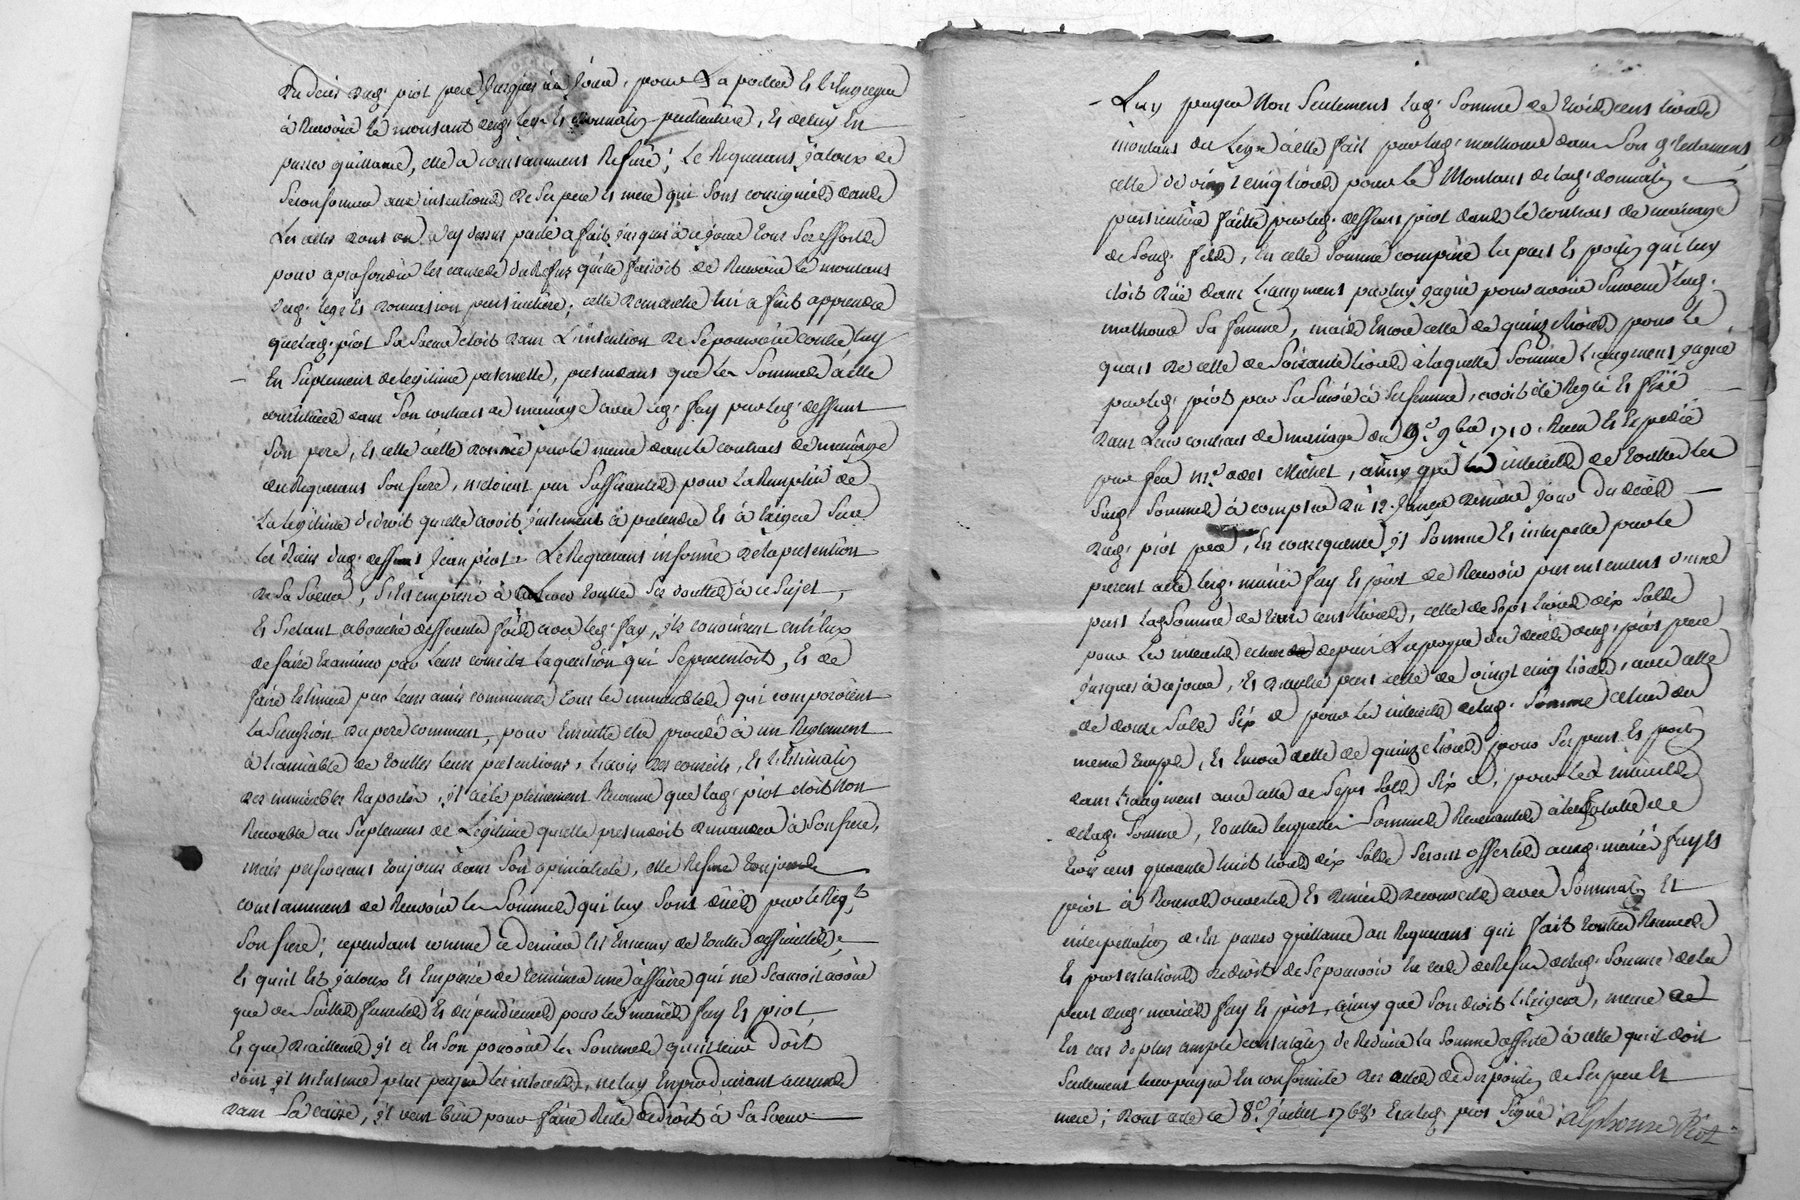 du deces dud. piot pere jusques à ce jour, pour La porter Et L'Engager
à Recevoir Le montant dud. legs Et donnation particuliere, Et de luy En
passer quittance, elle a constamment Refusé; Le Requerant jaloux de
se conformer aux intentions de ses pere Et mere qui sont consignées dans
Les actes dont on a cy dessus parlé a fait jusques à ce jour tous ses efforts
pour aprofondir les causes du Refus qu'elle faisoit de Recevoir le montant
dud. legs Et donnation particuliere; cette demarche luy a fait apprendre
que lad. piot sa soeur etoit dans L'intention de se pourvoir contre luy
En suplement de legitime paternelle, pretendant que les sommes à elle
constituées dans son contrat de mariage avec led. fay par led. deffunt
son pere, Et celle à elle donnée par le meme dans le contrat de mariage
du Requerant son frere, n'etoient pas suffisantes pour La Remplir de
La legitime de droit qu'elle avoit justement à pretendre Et à Exiger sur
les biens dud. deffunt jean piot. Le Requerant informé de la pretention
de sa soeur, s'est empressé à lever touttes ses doutes à ce sujet,
Et s'etant abouché differentes fois avec led. fay, ils convinrent entr'eux
de faire Examiner par leurs conseils la question qui se presentoit, Et de
faire Estimer par leurs amis communs tous les immeubles qui composoient
La succession du pere commun, pour Ensuitte etre procedé à un Reglement
à l'amiable de touttes leurs pretentions, L'avis des conseils, Et L'Estimation
des immeubles Raportée, il a eté pleinement Reconnu que lad. piot etoit non
Recevable au suplement de Legitime qu'elle pretendoit demander à son frere,
mais persistant toujours dans son opiniatreté, elle Refuse toujours
constamment de Recevoir les sommes qui luy sont dües par le Reqt.
son frere; cependant comme ce dernier Est Ennemy de touttes difficultés,
Et qu'il Est jaloux Et Empressé de terminer une affaire qui ne sçauroit avoir
que des suittes funestes Et dispendieuses pour les mariés fay Et piot,
Et que d'ailleurs il a En son pouvoir les sommes qu'il leur doit
dont il n'entend plus payer les interets, ne luy En produisant aucuns
dans sa caisse, il veut bien pour faire Rendre de droit à sa soeur
Luy payer Non seulement lad. somme de trois cens livres
montant du Legs à elle fait par lad. mathoud dans son testament,
celle de vingt cinq livres pour Le Montant de lad. donnation
particuliere faitte par led. deffunt piot dans le contrat de mariage
de sond. fils, En cette somme compris les part Et portion qui luy
etoit düe dans L'augment par luy gagné pour avoir survecu lad.
mathoud sa femme, mais Encore celle de quinze livres pour le
quart de celle de soixante livres à laquelle somme L'augment gagné
par led. piot par sa survie à sa femme, avoit eté Reglé Et fixé
dans leur contrat de mariage du 9e. 9bre 1710. Receu Et Expedié
par feu me. Michel, ainsy que les interets de touttes les
susd. sommes à compter du 12. janvier dernier jour du deces
dud. piot pere, En consequence il somme Et interpelle par le
present acte lesd. mariés fay Et piot de Recevoir presentement d'une
part lad. somme de trois cens livres, celle de sept livres dix sols
pour les interets echus depuis L'epoque du deces dud. piot pere
jusques à ce jour, Et d'autre part celle de vingt cinq livres, avec celle
de douze sols six d. pour les interets de lad. somme echus du
meme temps, Et Encore celle de quinze livres pour ses part Et portion
dans L'augment avec celle de sept sols six d. pour les interets
de lad. somme, touttes lesquelles sommes Revenantes à la totalle de
trois cens quarante huit livres dix sols seront offertes auxd. mariés fay Et
piot à Bourse ouverte Et deniers decouverts avec sommation Et
interpellation de En passer quittance au Requerant qui fait touttes Reserves
Et protestations de droit de se pourvoir En cas de Refus de lad. somme de la
part desd. mariés fay Et piot, ainsy que son droit L'Exigera, meme
En cas de plus ample contestation de Reduire La somme offerte à celle qu'il doit
seulement leur payer En conformité des actes de dispositions de ses pere Et
mere; dont acte ce 8e. juillet 1768. Et a led. piot signé.
alphonse Piot